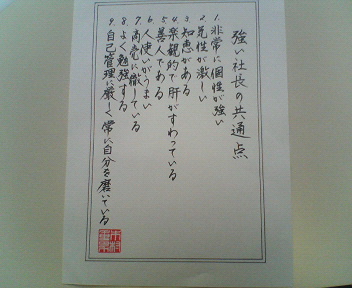 強い社長の共通点
1. 非常に個性が強い
2. 気性が激しい
3. 知恵がある
4. 楽観的で肝がすわっている
5. 善人である
6. 人使いがうまい
7. 商売に徹している
8. よく勉強する
9. 自己管理に厳しく常に自分を磨いている